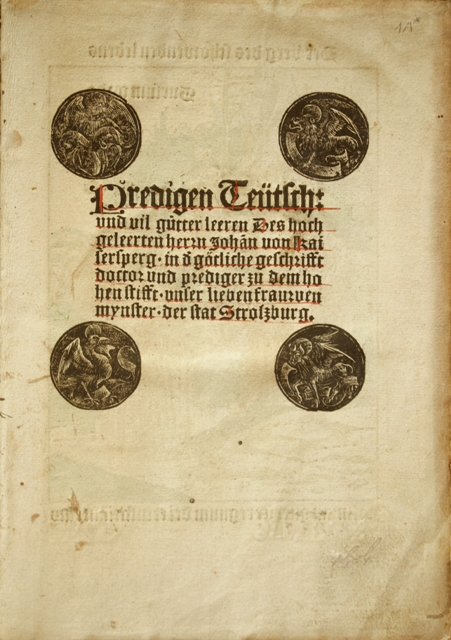 Predigen Teütsch:
vnd vil gütter leeren Des hoch
geleerten herrn Johãn von Kai
sersperg · in d götliche geschrifft
doctor vnd prediger zu dem ho
hen stifft · vnser lieben frauwen
mynster · der stat Stroszburg.